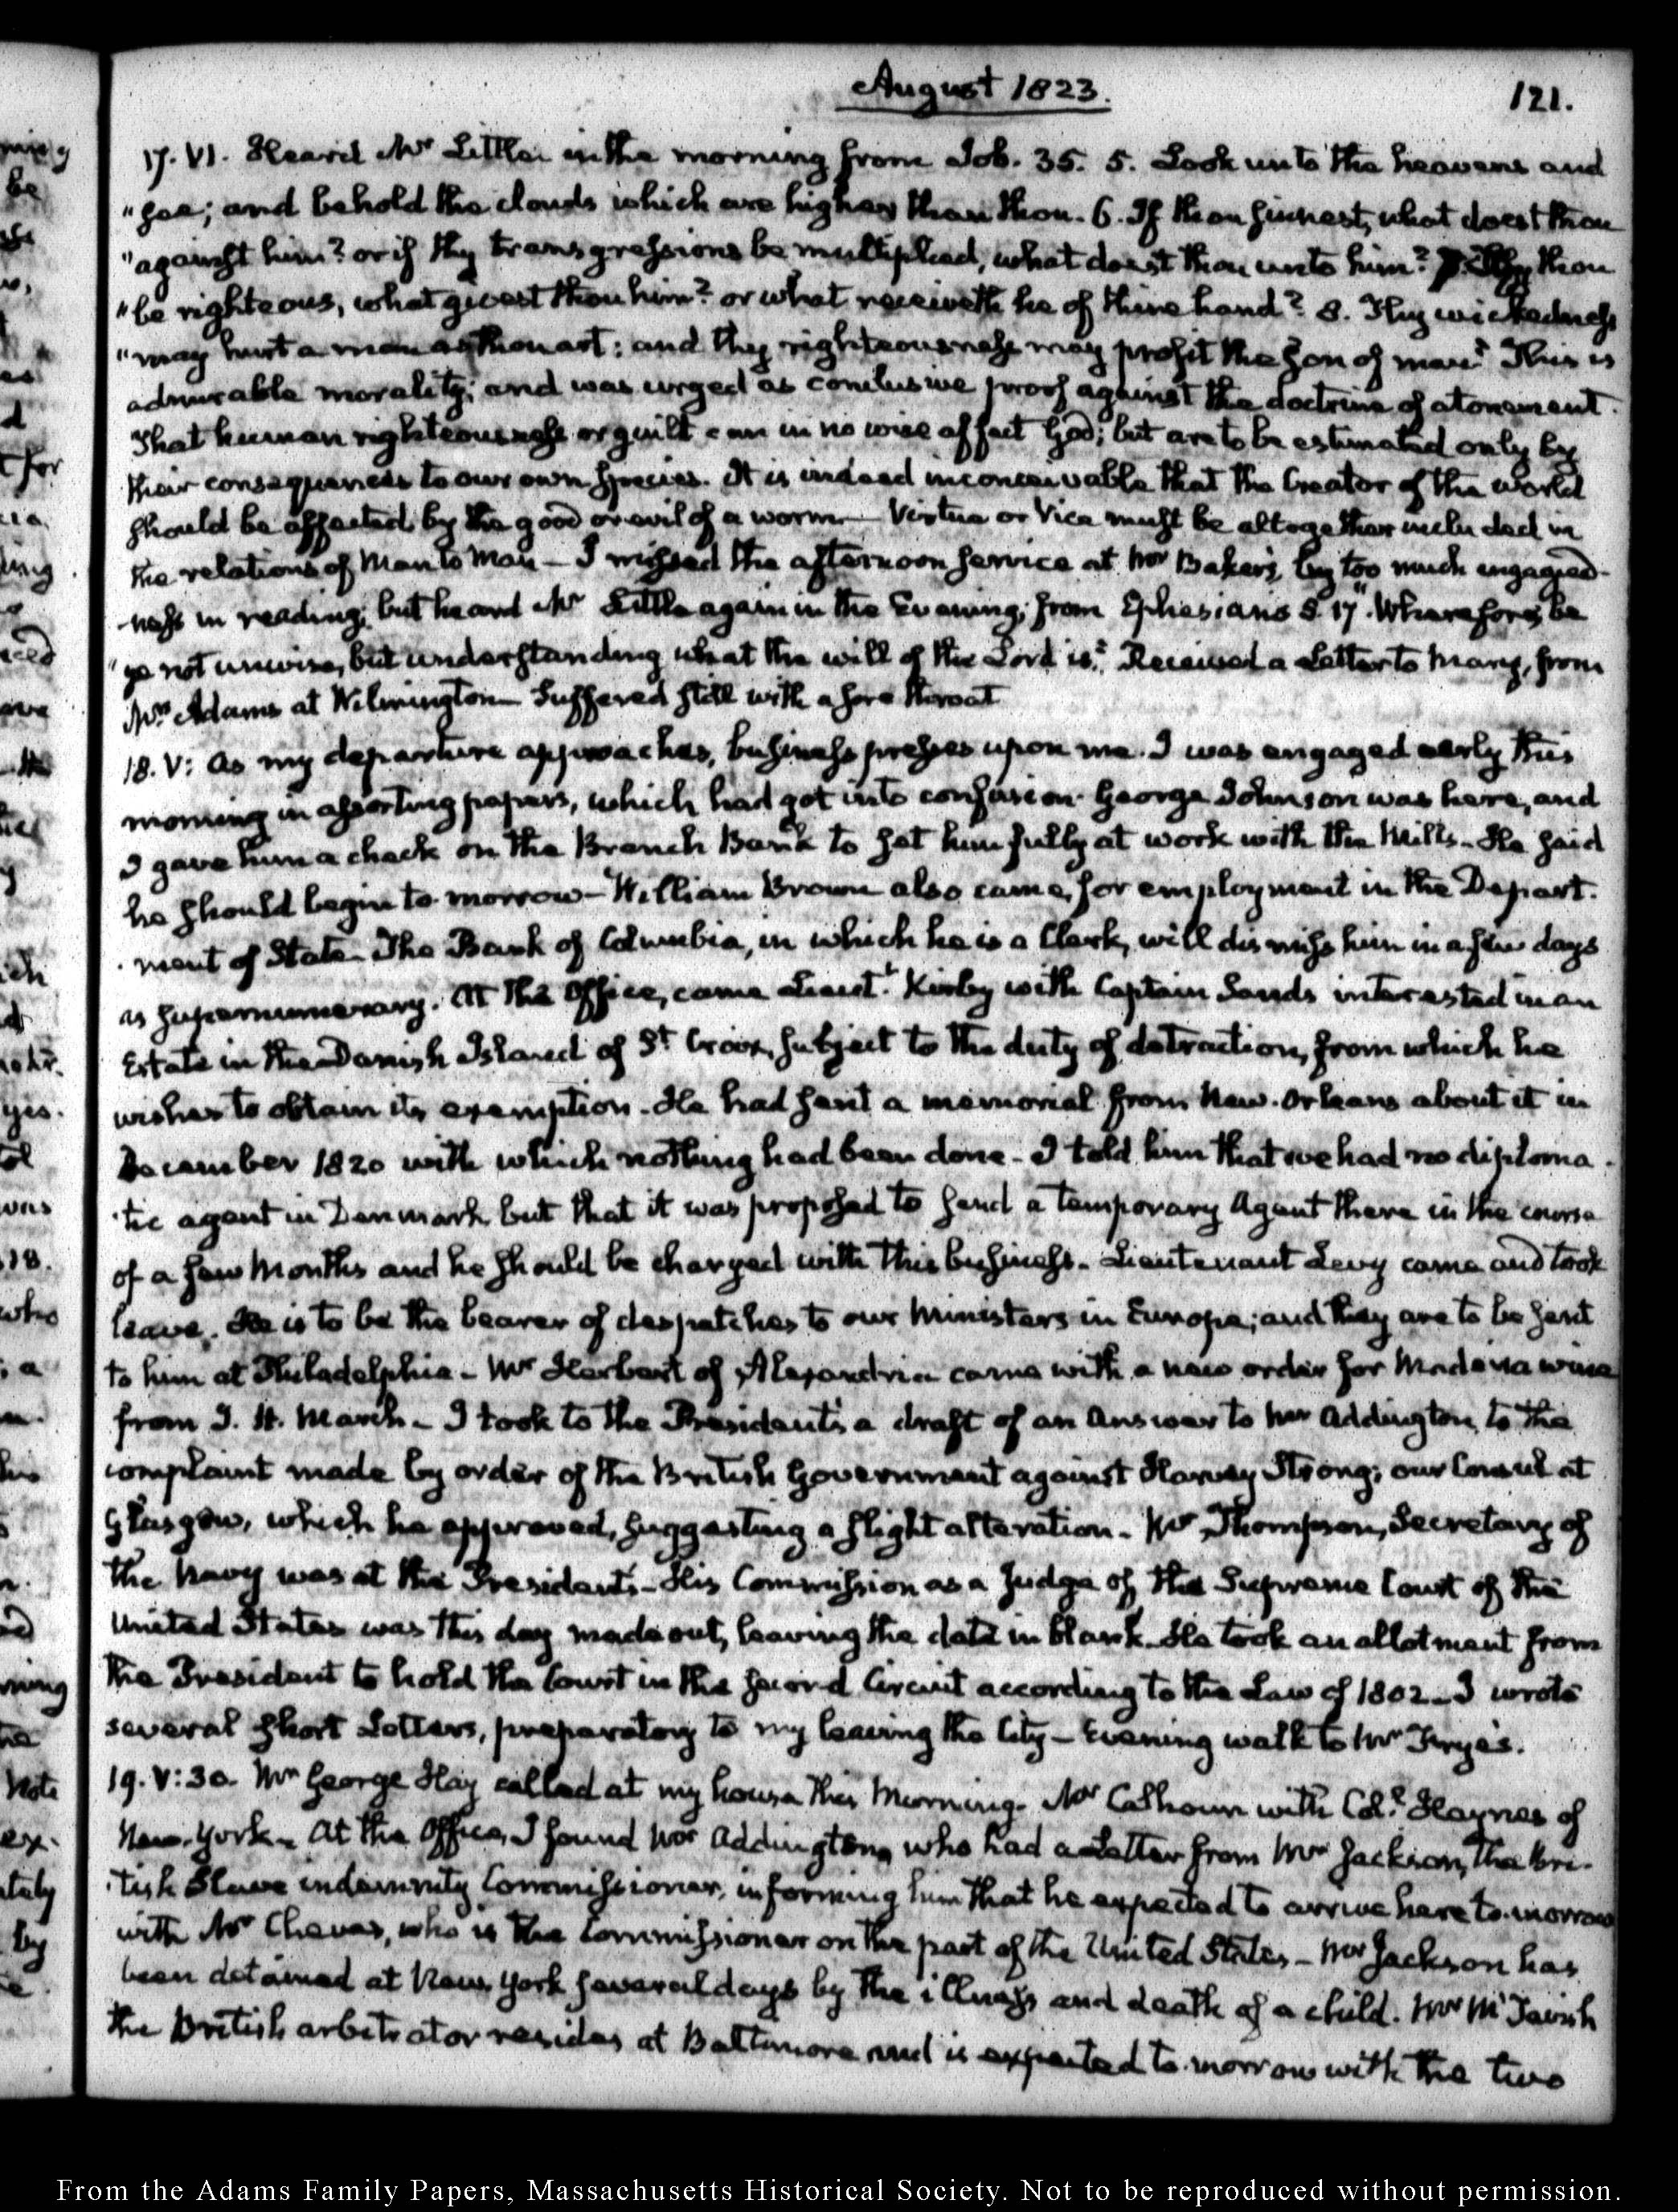 August 1823.
121.
17. VI. Heard Mr Little in the morning from Job. 35. 5. Look unto the heavens and
"see; and behold the clouds which are higher than thou. 6. If thou sinnest, what doest thou
"against him? or if thy transgressions be multiplied, what doest thou unto him? 7. If thou
"be righteous, what givest thou him? or what receiveth he of thine hand? 8. Thy wickedness
"may hurt a man as thou art: and thy righteousness may profit the son of man." This is
admirable morality; and was urged as conclusive proof against the doctrine of atonement.
That human righteousness or guilt can in no wise affect God; but are to be estimated only by
their consequences to our own species. It is indeed inconceivable that the Creator of the world
should be affected by the good or evil of a worm — Virtue or Vice must be altogether included in
the relations of Man to Man — I missed the afternoon service at Mr Baker's, by too much engaged-
-ness in reading; but heard Mr Little again in the Evening; from Ephesians 5. 17. "Wherefore, be
"ye not unwise, but understanding what the will of the Lord is." Received a Letter to Mary, from
Mrs Adams at Wilmington — Suffered still with a sore throat
18. V: As my departure approaches, business presses upon me. I was engaged early this
morning in assorting papers, which had got into confusion. George Johnson was here, and
I gave him a check on the Branch Bank to set him fully at work with the Mills. He said
he should begin to-morrow — William Brown also came, for employment in the Depart-
-ment of State. The Bank of Columbia, in which he is a Clerk, will dismiss him in a few days
as supernumerary. At the Office, came Lieutt. Kirby with Captain Sands interested in an
Estate in the Danish Island of St Croix, subject to the duty of detraction, from which he
wishes to obtain its exemption. He had sent a memorial from New-Orleans about it in
December 1820 with which nothing had been done. I told him that we had no diploma-
-tic agent in Denmark but that it was proposed to send a temporary Agent there in the course
of a few Months and he should be charged with this business. Lieutenant Levy came and took
leave. He is to be the bearer of despatches to our Ministers in Europe; and they are to be sent
to him at Philadelphia — Mr Herbert of Alexandria came with a new order for Madeira wine
from J. H. March — I took to the President's a draft of an answer to Mr Addington, to the
complaint made by order of the British Government against Harvey Strong; our Consul at
Glasgow, which he approved, suggesting a slight alteration — Mr Thompson, Secretary of
the Navy was at the President's — His Commission as a Judge of the Supreme Court of the
United States was this day made out, leaving the date in blank. He took an allotment from
the President to hold the Court in the second Circuit according to the Law of 1802 — I wrote
several short Letters, preparatory to my leaving the City — Evening walk to Mr Frye's.
19. V:30. Mr George Hay called at my house this Morning. Mr Calhoun with Coll. Haynes of
New-York — At the Office, I found Mr Addington, who had a Letter from Mr Jackson, the Bri-
-tish Slave indemnity Commissioner, informing him that he expected to arrive here to-morrow
with Mr Cheves, who is the Commissioner on the part of the United States — Mr Jackson has
been detained at New York several days by the illness and death of a child. Mr McTavish
the British arbitrator resides at Baltimore and is expected to-morrow with the two
From the Adams Family Papers, Massachusetts Historical Society. Not to be reproduced without permission.